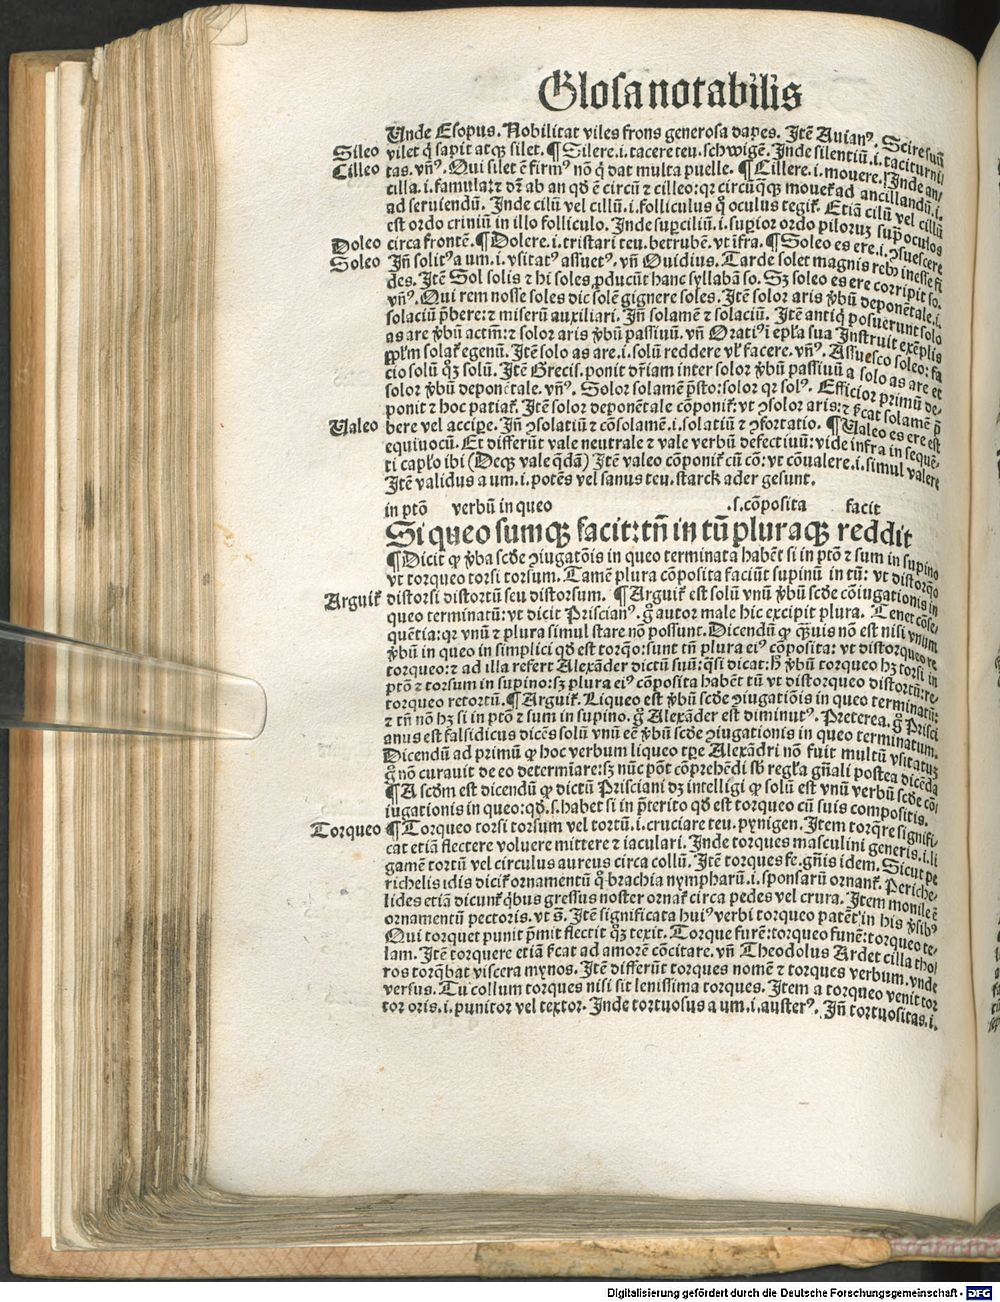 Glosa notabilis
Unde Esopus. Nobilitat viles frons generosa dapes. Itē Auianꝰ. Scire suū
Sileo vilet q̇ sapit atqꝫ silet. ¶ Silere .i. tacere teu. schwigē. Inde silentiū .i. taciturni/
Cilleo tas. vn̄ꝰ. Qui silet ē firmꝰ nō q̇ dat multa puelle. ¶ Cillere .i. mouere. Inde an/
cilla .i. famula: ⁊ dr̄ ab an qd̄ ē circū ⁊ cilleo: qꝛ circūq̄qꝫ mouet̄ ad ancillandū .i.
ad seruiendū. Inde ciliū vel cillū .i. folliculus quo oculus tegit̄. Etiā ciliū vel cillū
est ordo criniū in illo folliculo. Inde sup̱ciliū .i. sup̱ior ordo piloruꝫ sup̱ oculos
Doleo circa frontē. ¶ Dolere .i. tristari teu. betrubē. vt īfra. ¶ Soleo es ere .i. ꝯsuescere
Soleo In̄ solitꝰ a um .i. vsitatꝰ assuetꝰ. vn̄ Ouidius. Tarde solet magnis rebꝰ inesse fi
des. Itē Sol solis ⁊ hi soles ꝓducūt hanc syllabā so. Sꝫ soleo es ere corripit so.
vn̄ꝰ. Qui rem nosse soles dic solē gignere soles. Itē solor aris v̄bū deponētale .i.
solaciū p̄bere: ⁊ miserū auxiliari. In̄ solamē ⁊ solaciū. Itē antiq̇ posuerunt solo
as are v̄bū actm̄: ⁊ solor aris v̄bū passiuū. vn̄ Oratiꝰ ī epl̄a sua Instruit exēplis
solat̄ egenū. Itē solo as are .i. solū reddere vl̄ facere. vn̄ꝰ. Assuesco soleo: fa
cio solū qꝫ solū. Itē Grecis. ponit dr̄iam inter solor v̄bū passiuū a solo as are et
solor v̄bū deponētale. vn̄ꝰ. Solor solamē p̄sto: solor qꝛ solꝰ. Efficior primū de/
ponit ⁊ hoc patiar̄. Itē solor deponētale cōponit̄: vt ꝯsolor aris: ⁊ solamē p̄
Ualeo bere vel accipe. In̄ ꝯsolatiū ⁊ cōsolamē .i. solatiū ⁊ ꝯfortatio. ¶ Ualeo es ere est
equiuocū. Et differūt vale neutrale ⁊ vale verbū defectiuū: vide infra in sequē/
ti caplo ibi (Deqꝫ vale q̄dā) Itē valeo cōponit̄ cū cō: vt cōualere .i. simul valere
Itē validus a um .i. potēs vel sanus teu. starck ader gesunt.
in pt̄o verbū in queo .s. cōposita facit
Si queo sumqꝫ facit: tn̄ in tū pluraqꝫ reddit
¶ Dicit ꝙ v̄ba scd̄e ꝯiugatōis in queo terminata habēt si in pt̄o ⁊ sum in supino
vt torqueo torsi torsum. Tamē plura cōposita faciūt supinū in tū: vt distorq̄o
Arguit̄ distorsi distortū seu distorsum. ¶ Arguit̄ est solū vnū v̄bū scd̄e cōiugationis in
queo terminatū: vt dicit Priscianꝰ. g̊ autor male hic excipit plura. Tenet cōse/
quētia: qꝛ vnū ⁊ plura simul stare nō possunt. Dicendū ꝙ q̄uis nō est nisi vnum
v̄bū in queo in simplici qd̄ est torq̄o: sunt tn̄ plura eiꝰ cōposita: vt distorqueo re
torqueo: ⁊ ad illa refert Alexāder dictū suū: q̄si dicat: hͦ v̄bū torqueo hꝫ torsi in
pt̄o ⁊ torsum in supino: sꝫ plura eiꝰ cōposita habēt tū vt distorqueo distortū: re/
torqueo retortū. ¶ Arguit̄. Liqueo est v̄bū scd̄e ꝯiugatiōis in queo terminatū:
⁊ tn̄ nō hꝫ si in pt̄o ⁊ sum in supino. g̊ Alexāder est diminutꝰ. Preterea. g̊ Prisci
anus est falsidicus dicēs solū vnū eē v̄bū scd̄e ꝯiugationis in queo terminatum.
Dicendū ad primū ꝙ hoc verbum liqueo tp̄e Alexādri nō fuit multū vsitatuꝫ
g̊ nō curauit de eo determīare: sꝫ nūc pōt cōprehēdi sb̄ regl̄a gn̄ali postea dicēda
¶ A scd̄m est dicendū ꝙ dictū Prisciani dꝫ intelligi ꝙ solū est vnū verbū scd̄e cō/
iugationis in queo: qd̄ .s. habet si in p̄terito qd̄ est torqueo cū suis compositis.
Torqueo ¶ Torqueo torsi torsum vel tortū .i. cruciare teu. pynigen. Item torq̄re signifi/
cat etiā flectere voluere mittere ⁊ iaculari. Inde torques masculini generis .i. li
gamē tortū vel circulus aureus circa collū. Itē torques fe. gn̄is idem. Sicut pe
richelis idis dicit̄ ornamentū qͦ brachia nympharū .i. sponsarū ornant̄. Periche/
lides etiā dicunt̄ qͥbus gressus noster ornat̄ circa pedes vel crura. Item monile ē
ornamentū pectoris. vt s̄. Itē significata huiꝰ verbi torqueo patēt in his v̄sibꝰ
Qui torquet punit p̄mit flectit qꝫ texit. Torque furē: torqueo funē: torqueo te/
lam. Itē torquere etiā ad amorē cōcitare. vn̄ Theodolus Ardet cilla tho/
ros torq̄bat viscera mynos. Itē differūt torques nomē ⁊ torques verbum. vnde
versus. Tu collum torques nisi sit lenissima torques. Item a torqueo venit tor
tor oris .i. punitor vel textor. Inde tortuosus a um .i. austerꝰ. In̄ tortuositas .i.
Digitalisierung gefördert durch die Deutsche Forschungsgemeinschaft - DFG